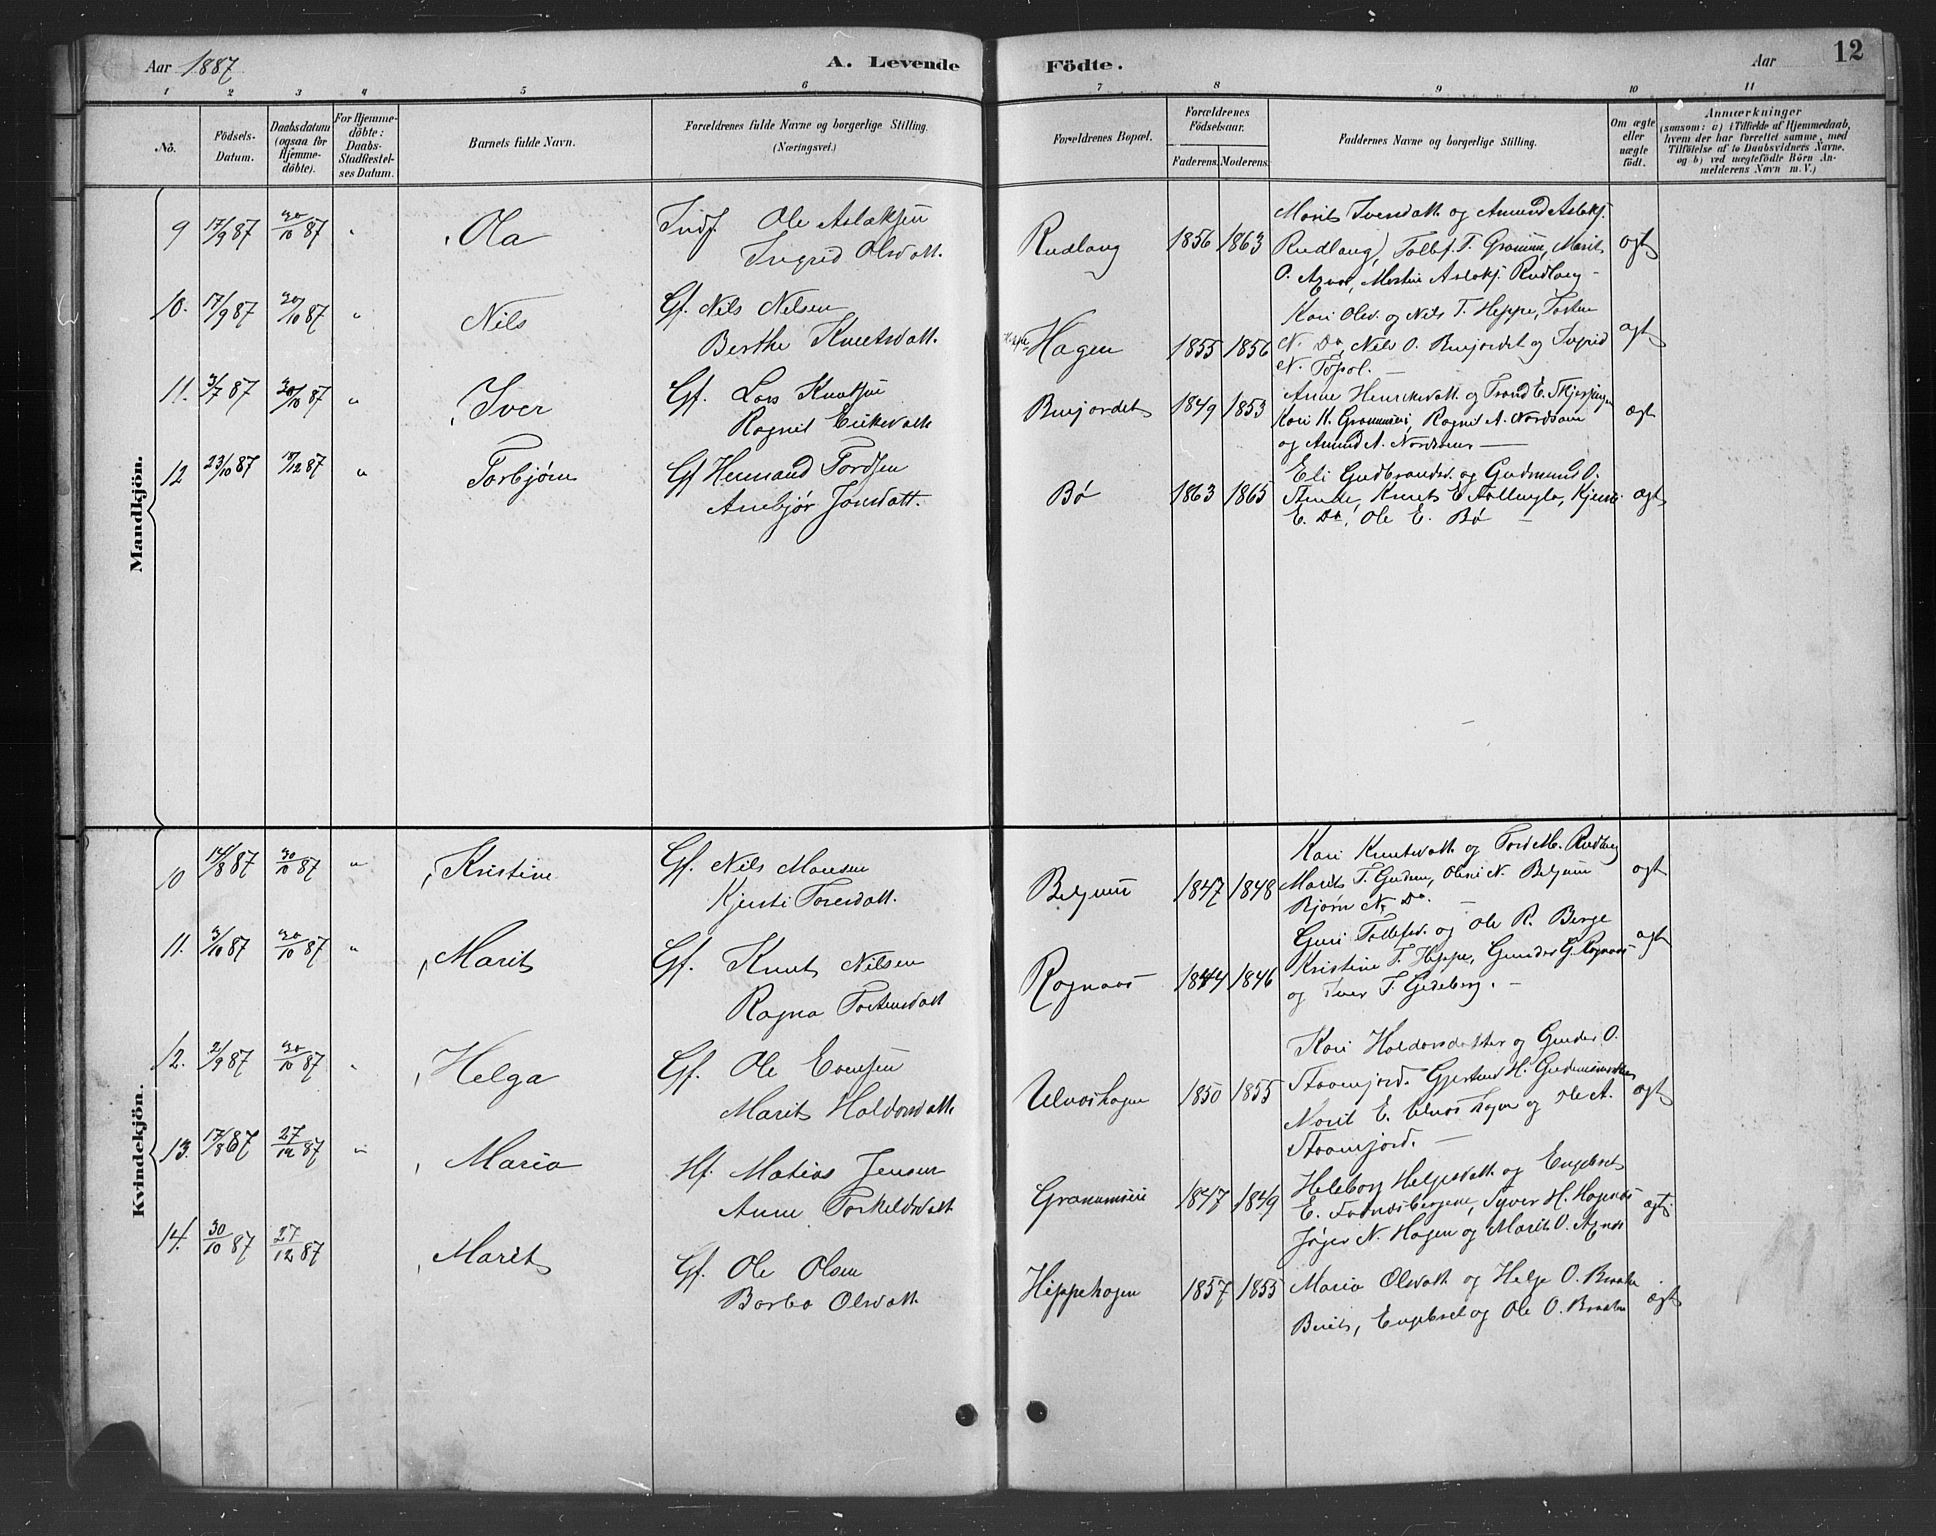 Aar 1887
A. Levende Födte.
Aar
12
1 2 3 4 5 6 7 8 9 10 11
No.
Födsels-Datum.
Daabsdatum (ogsaa for Hjemmedöbte).
For Hjemmedöbte: Daabs-Stadfæstelses Datum.
Barnets fulde Navn.
Forældrenes fulde Navne og borgerlige Stilling. (Næringsvei.)
Forældrenes Bopæl.
Forældrenes Födselsaar.
Faderens. Moderens.
Faddernes Navne og borgerlige Stilling.
Om ægte eller uægte födt.
Anmærkninger
(saasom: a) i Tilfælde af Hjemmedaab,
hvem der har forrettet samme, med
Tilföielse af to Daabsvidners Navne,
og b) ved uægtefödte Börn An-
melderens Navn m. V.)
Mandkjön.
9 17/9 87 30/10 87 " Ola
Indf. Ole Aslaksen
Ingrid Olsdatt.
Rudlang 1856 1863
Marit Iversdatt og Amund Aslaks.
Rudlang, Tollef T. Granum, Marit
O. , Aslaks. Rudlang -
ægt
10. 17/9 87 30/10 87 " Nils
Gf. Nils Nilsen
Berthe Knutsdatt.
Hagen 1855 1856
Kari Olsd. og Nils T. Heppe, Torsten
N. Do, Nils O. Buijordet og Ingrid
N. -
ægt
11. 3/7 87 30/10 87 " Iver
Gf. Lars Knutsen
Ragnil Eriksdatt
Buijordet 1849 1853
Anne Henriksdatt og Trond E.
Kari H. Granumseie, Ragnil A.
og Amund A. -
ægt
12 23/10 87 18/12 87 " Torbjørn
Gf Hermand Tordsen
Anbjør Jonsdatt.
Bø 1863 1865
Eli Gudbrandsd. og Gudmund O.
Knut E. Kjersti
E. Do, Ole E. Bø -
ægt
Kvindekjön.
10 14/8 87 30/10 87 " Kristine
Gf. Nils Monsen
Kjersti Toresdatt.
Belgum 1847 1848
Kari Knutsdatt og Tord M. Rudlang
Marit T. , Oline N. Belgum
Bjørn N. Do. -
ægt
11. 3/10 87 30/10 87 " Marit
Gf. Knut Nilsen
Ragna Torstensdatt
Rognaas 1844 1846
Guri Tollefsd. og Ole R. Berge
Kristine T. Heppe, Gunder G. Rognaas
og Iver T. . -
ægt
12. 2/9 87 30/10 87 " Helga
Gf. Ole Evensen
Marit Haldorsdatt.
Ulvashagen 1850 1855
Kari Haldorsdatter og Gunder O.
Gjertrud H.
Marit E. Ulvashagen og Ole A.
-
ægt
13. 17/8 87 27/12 87 " Maria
Hf. Matias Jensen
Anne Torkeldsdatt
Granumseie 1847 1849
Heleborg Helgesdatt og Engebret
E. , Syver H.
N. Hagen og Marit O.
ægt.
14. 30/10 87 27/12 87 Marit
Gf. Ole Olsen
Barbo Olsdatt
Hippehagen 1857 1855
Maria Olsdatt og Helge O. Braaten
Berit, Engebret og Ole O. Braaten
ægt